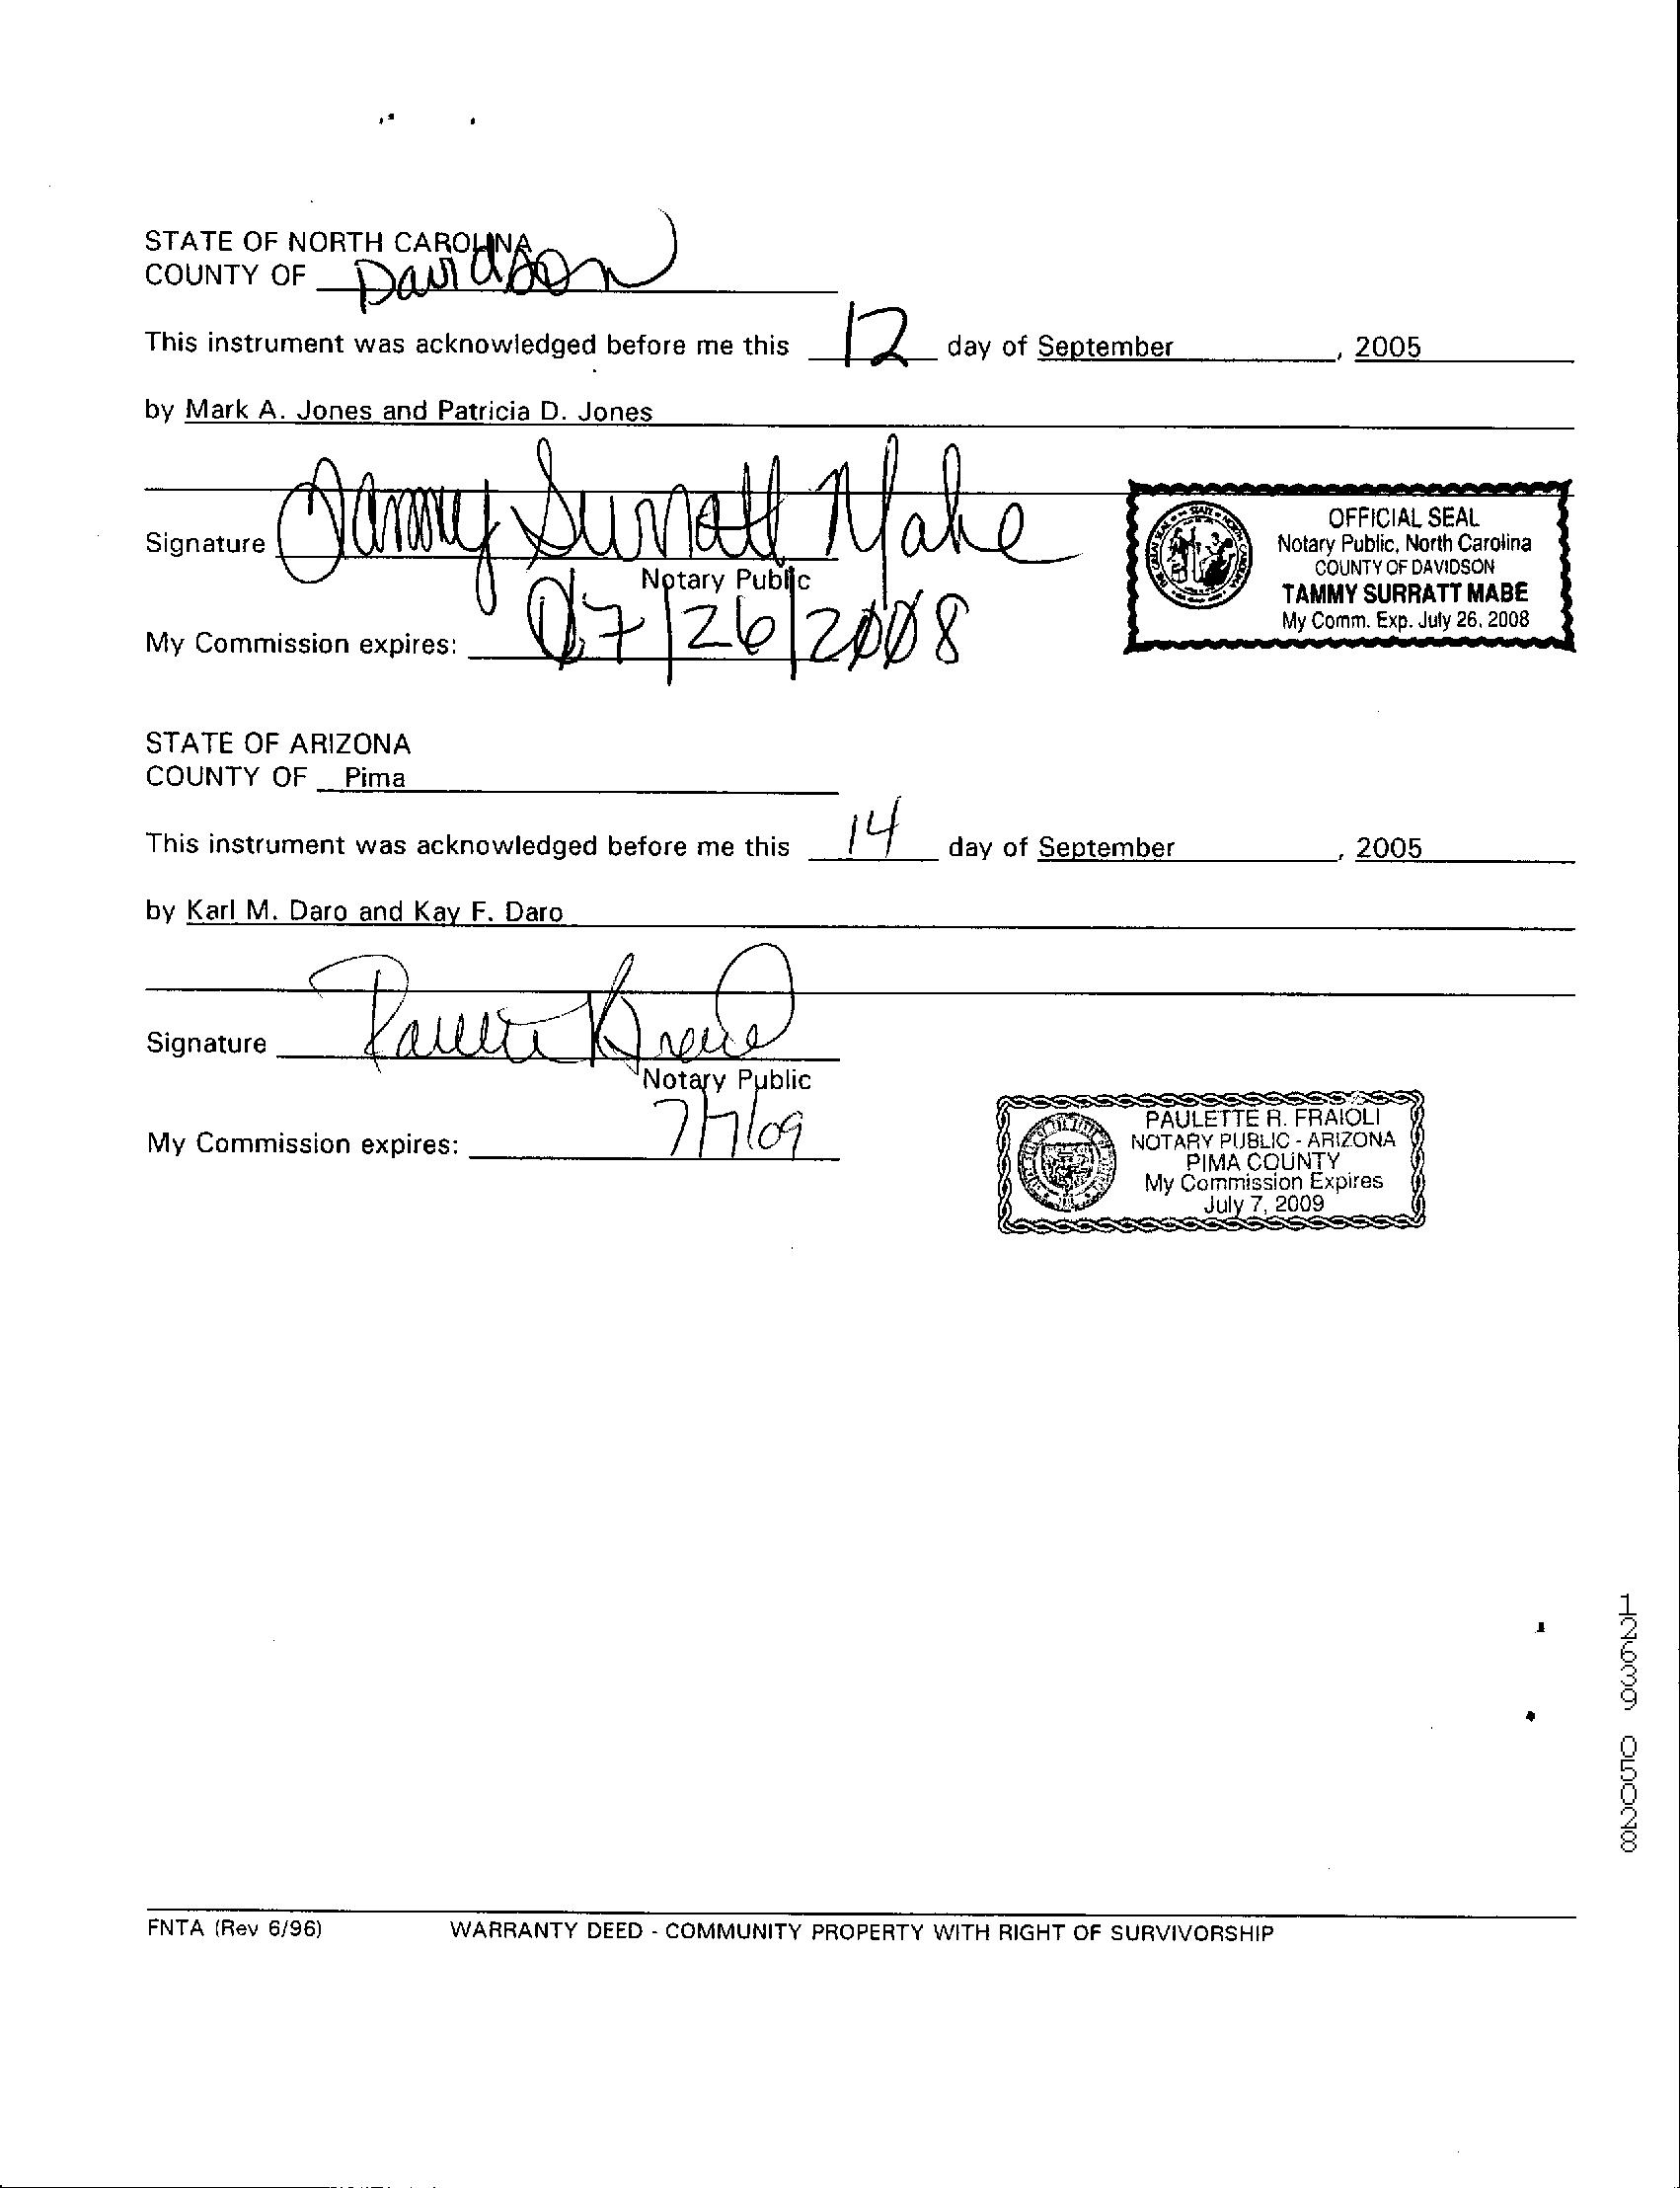 STATE OF NORTH CAROLINA
COUNTY OF Davidson
This instrument was acknowledged before me this 12 day of September, 2005
by Mark A. Jones and Patricia D. Jones
Signature Tammy Surratt Mabe
Notary Public
My Commission expires: 07/26/2008
OFFICIAL SEAL
Notary Public, North Carolina
COUNTY OF DAVIDSON
TAMMY SURRATT MABE
My Comm. Exp. July 26, 2008
STATE OF ARIZONA
COUNTY OF Pima
This instrument was acknowledged before me this 14 day of September, 2005
by Karl M. Daro and Kay F. Daro
Signature
Notary Public
My Commission expires: 7/7/09
PAULETTE R. FRAIOLI
NOTARY PUBLIC - ARIZONA
PIMA COUNTY
My Commission Expires
July 7, 2009
12639 05028
FNTA (Rev 6/96) WARRANTY DEED - COMMUNITY PROPERTY WITH RIGHT OF SURVIVORSHIP